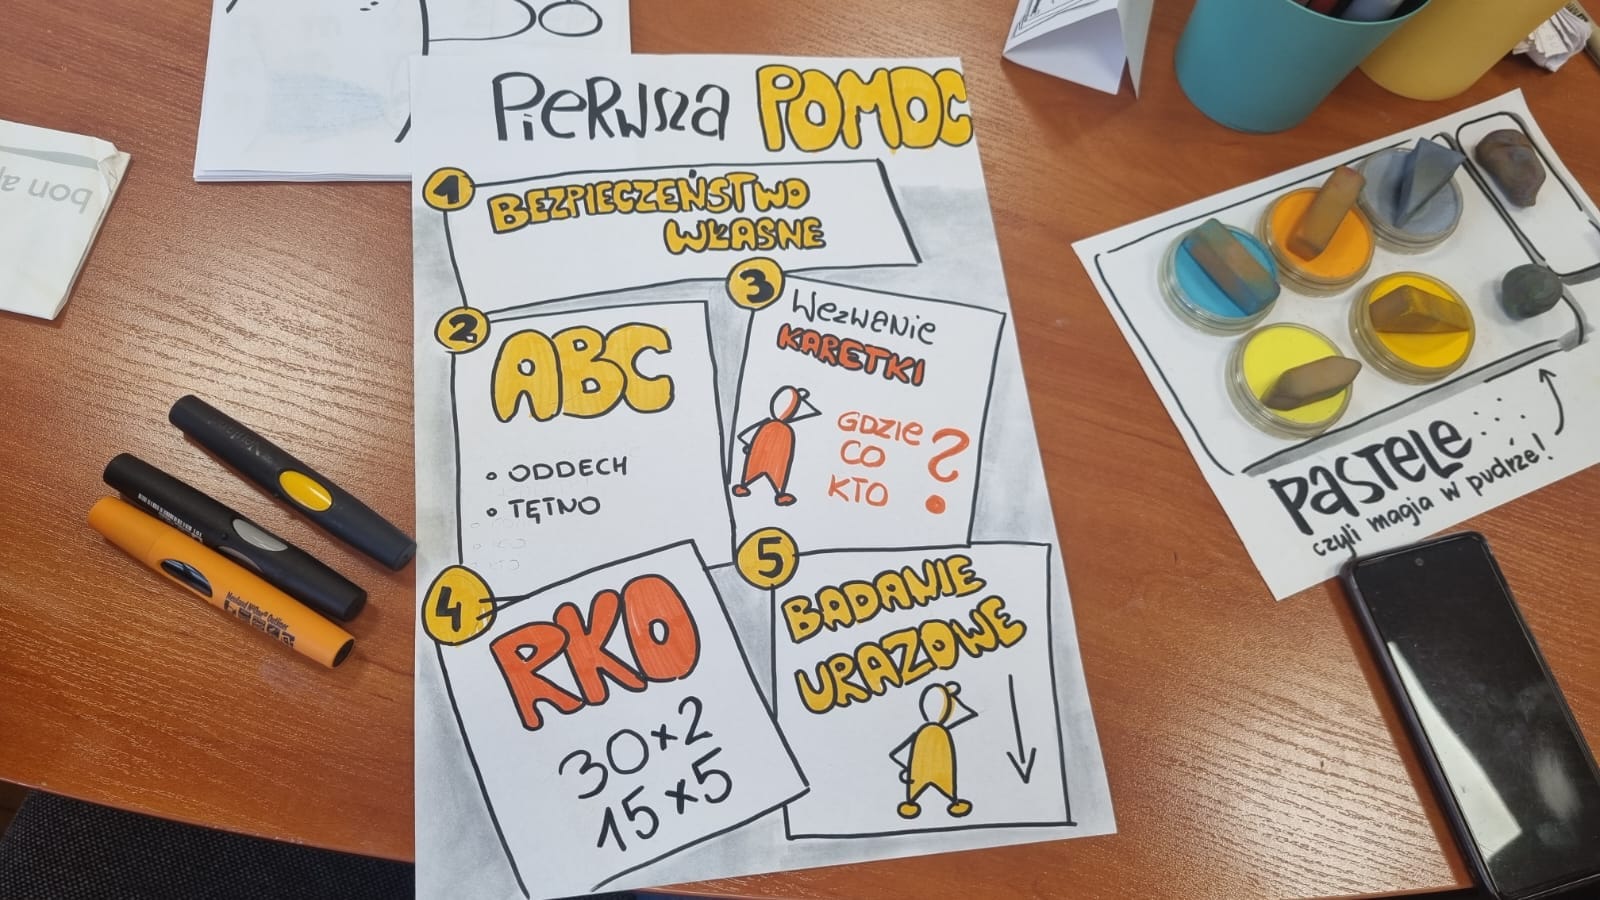 Pierwsza POMOC
1
BEZPIECZEŃSTWO
WŁASNE
2.
ABC
ODDECH
TĘTNO
3
Wezwanie
KARETKI
GDZIE
CO
KTO
?
4
RKO
30x2
15x5
5
BADANIE
URAZOWE
PASTELE
czyli magia w pudrze!
bon ap